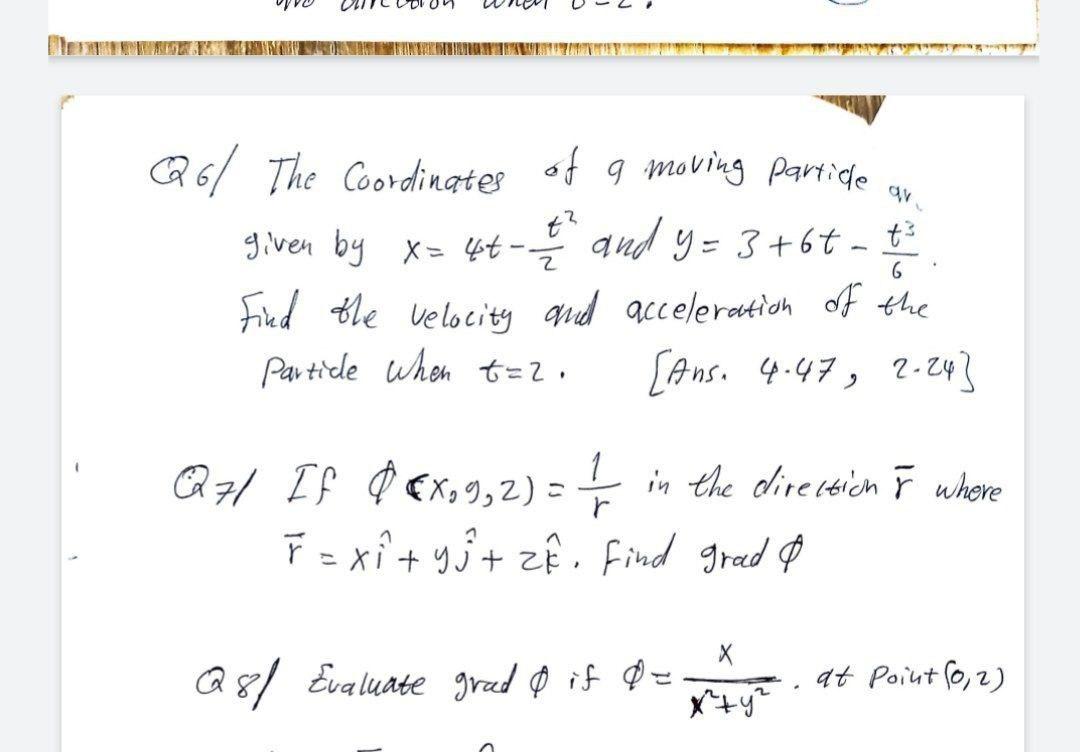 Q6/ The Coordinates of a moving Particle ar
given by x = 4t - t²/2 and y = 3 + 6t - t³/6 .
Find the velocity and acceleration of the
Particle when t=2 . [Ans. 4.47, 2.24]
Q7/ If φ(x,y,z) = 1/r in the direction r̄ where
r̄ = xî + yĵ + zk̂ . find grad φ
Q8/ Evaluate grad φ if φ = x/(x²+y²) . at Point (0,2)